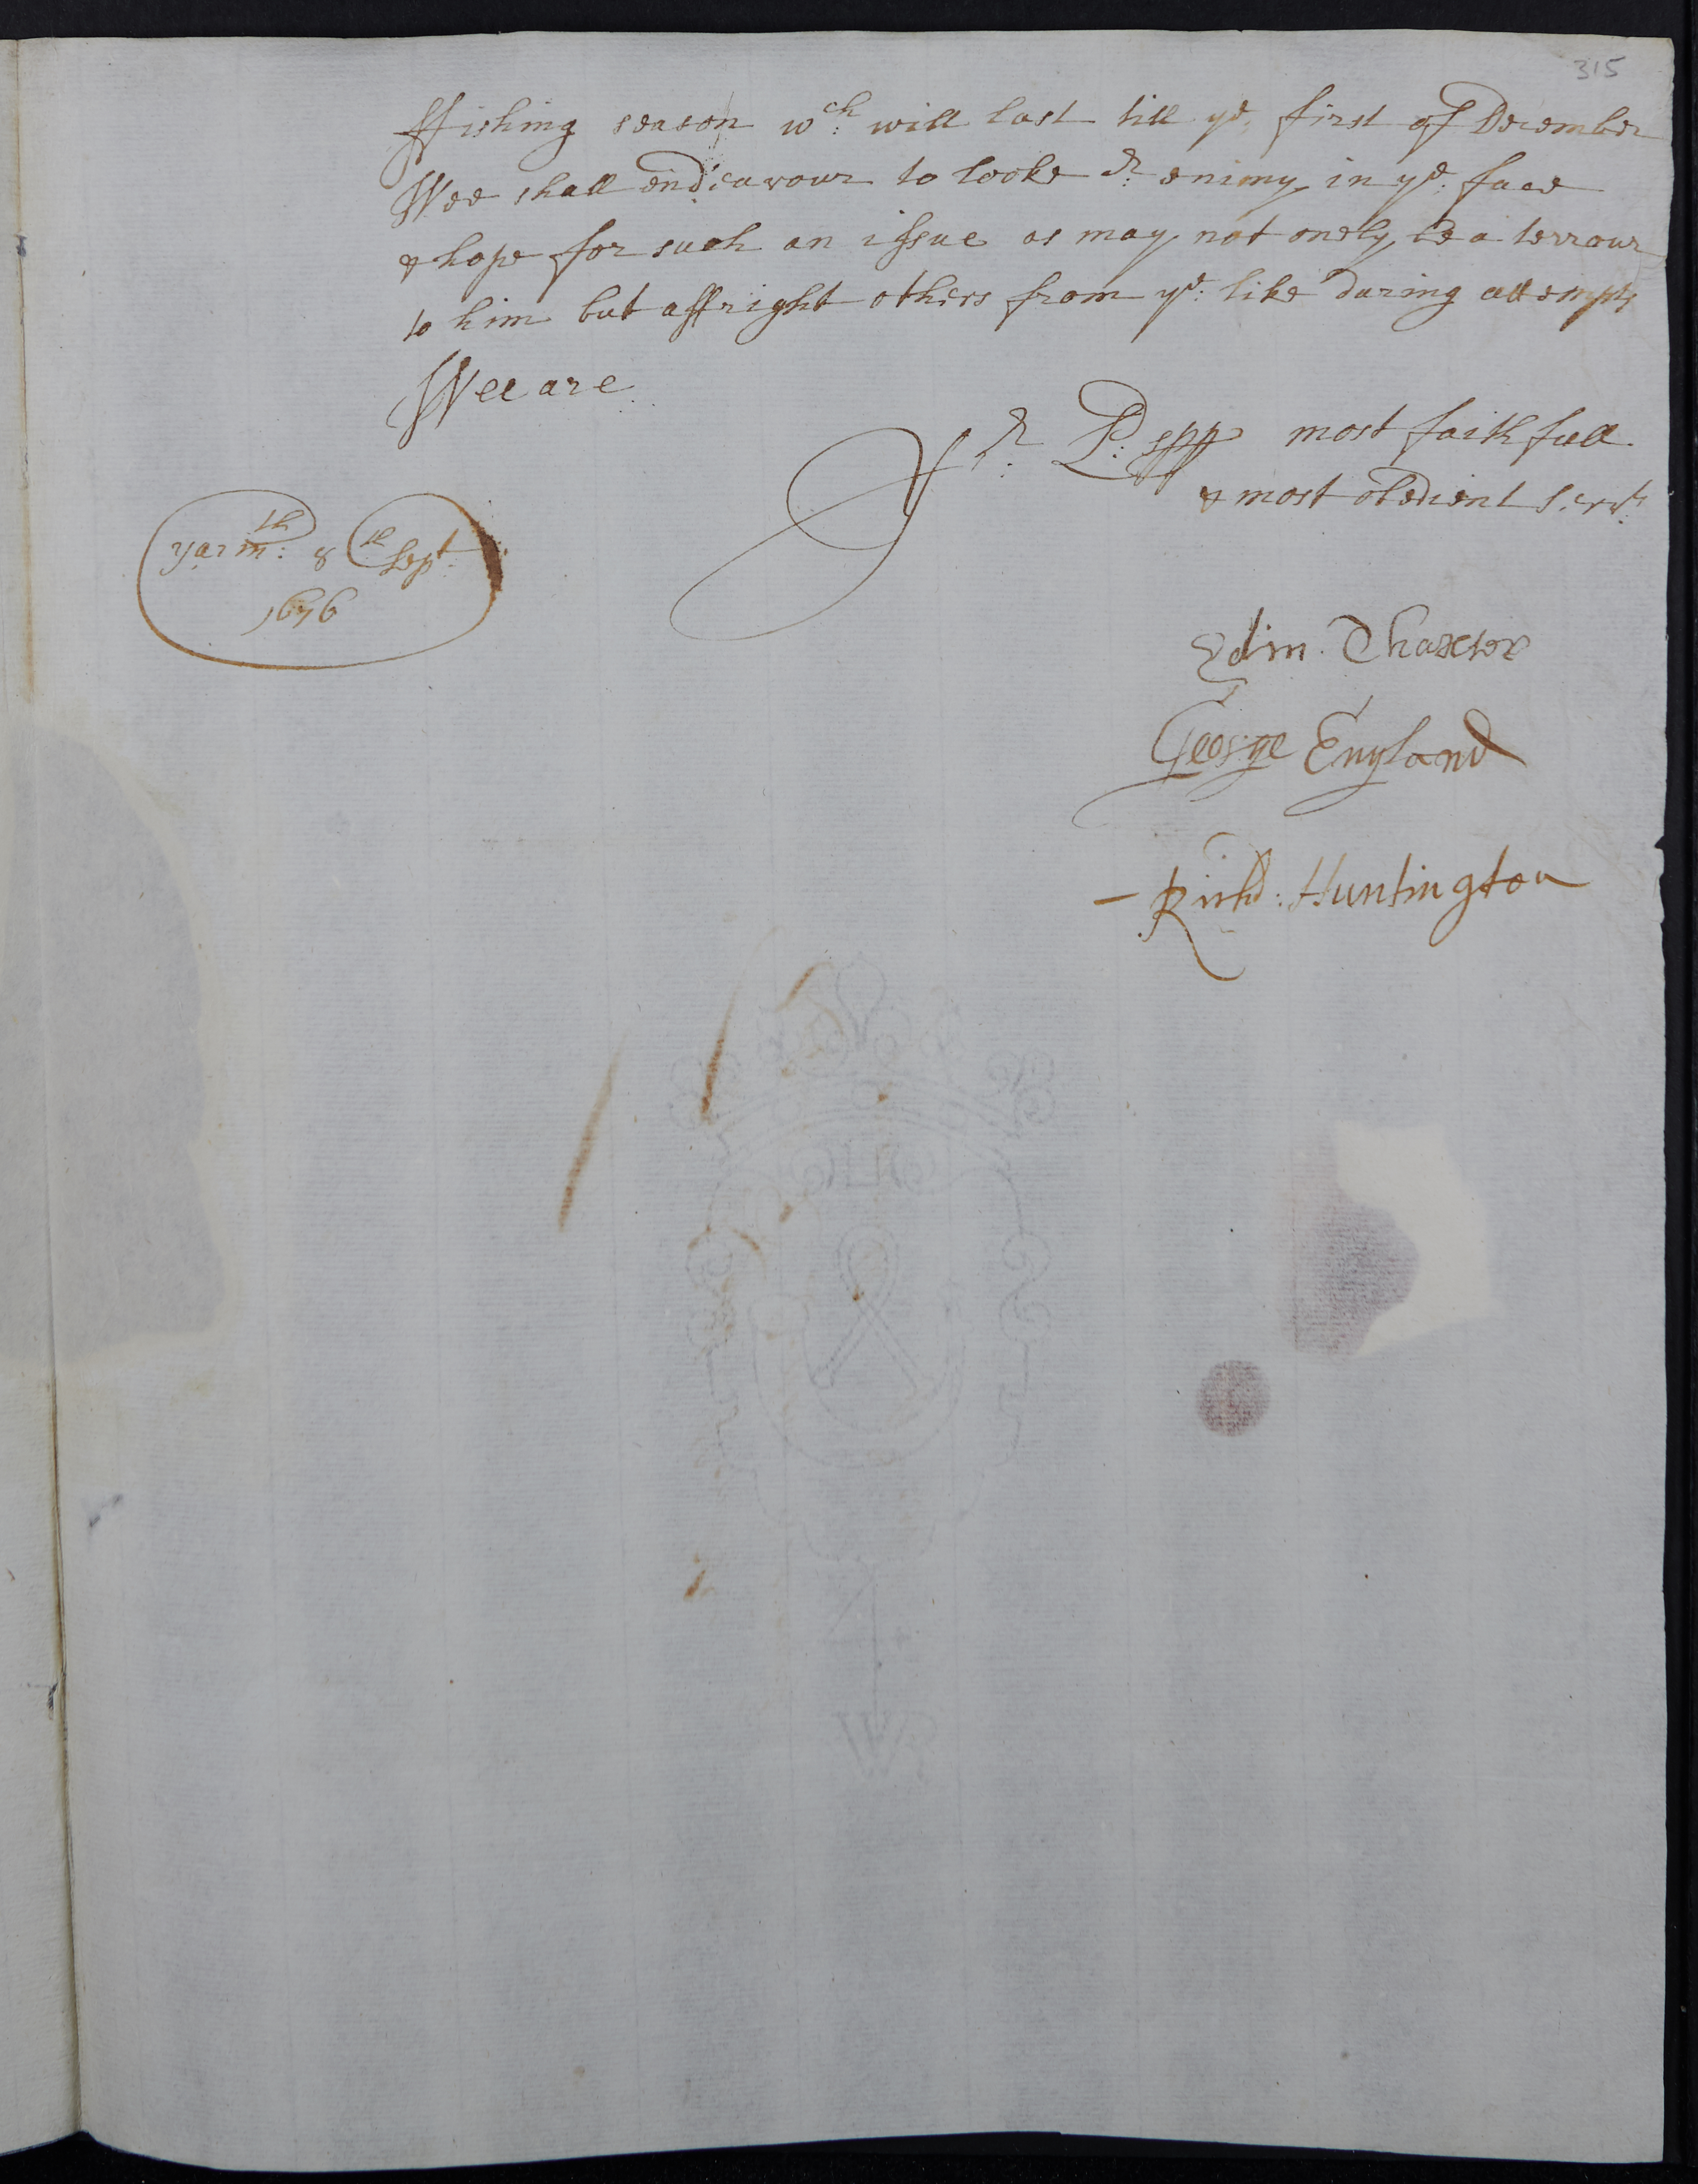 315
ffishing season wch will last till ye first of December
Wee shall endeavour to looke or enimy in ye face
& hope for such an issue as may not onely be a terrour
to him but affright others from ye like daring attempts
Wee are
Yr Ldspp most faithfull
& most obedient servts
Yarmth: 8th Sept:
1676
Edm. Thaxter
George England
Richd: Huntington